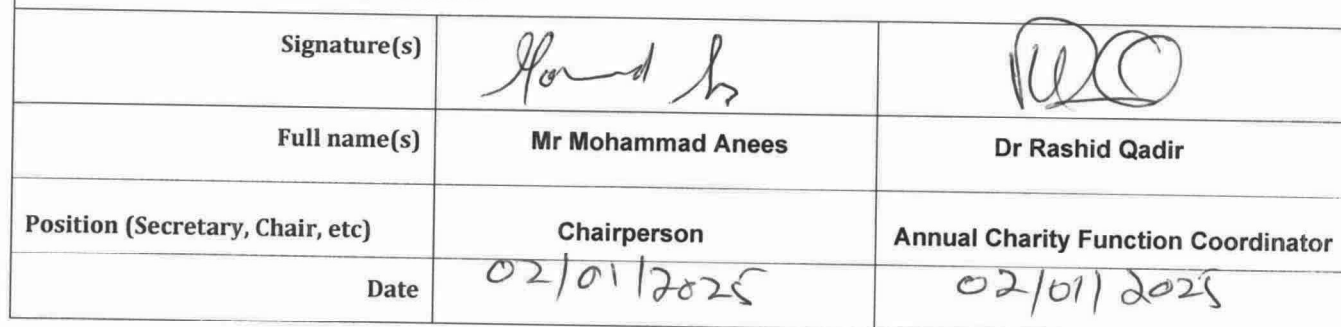 Signature(s)
Full name(s) Mr Mohammad Anees Dr Rashid Qadir
Position (Secretary, Chair, etc) Chairperson Annual Charity Function Coordinator
Date 02/01/2025 02/01/2025